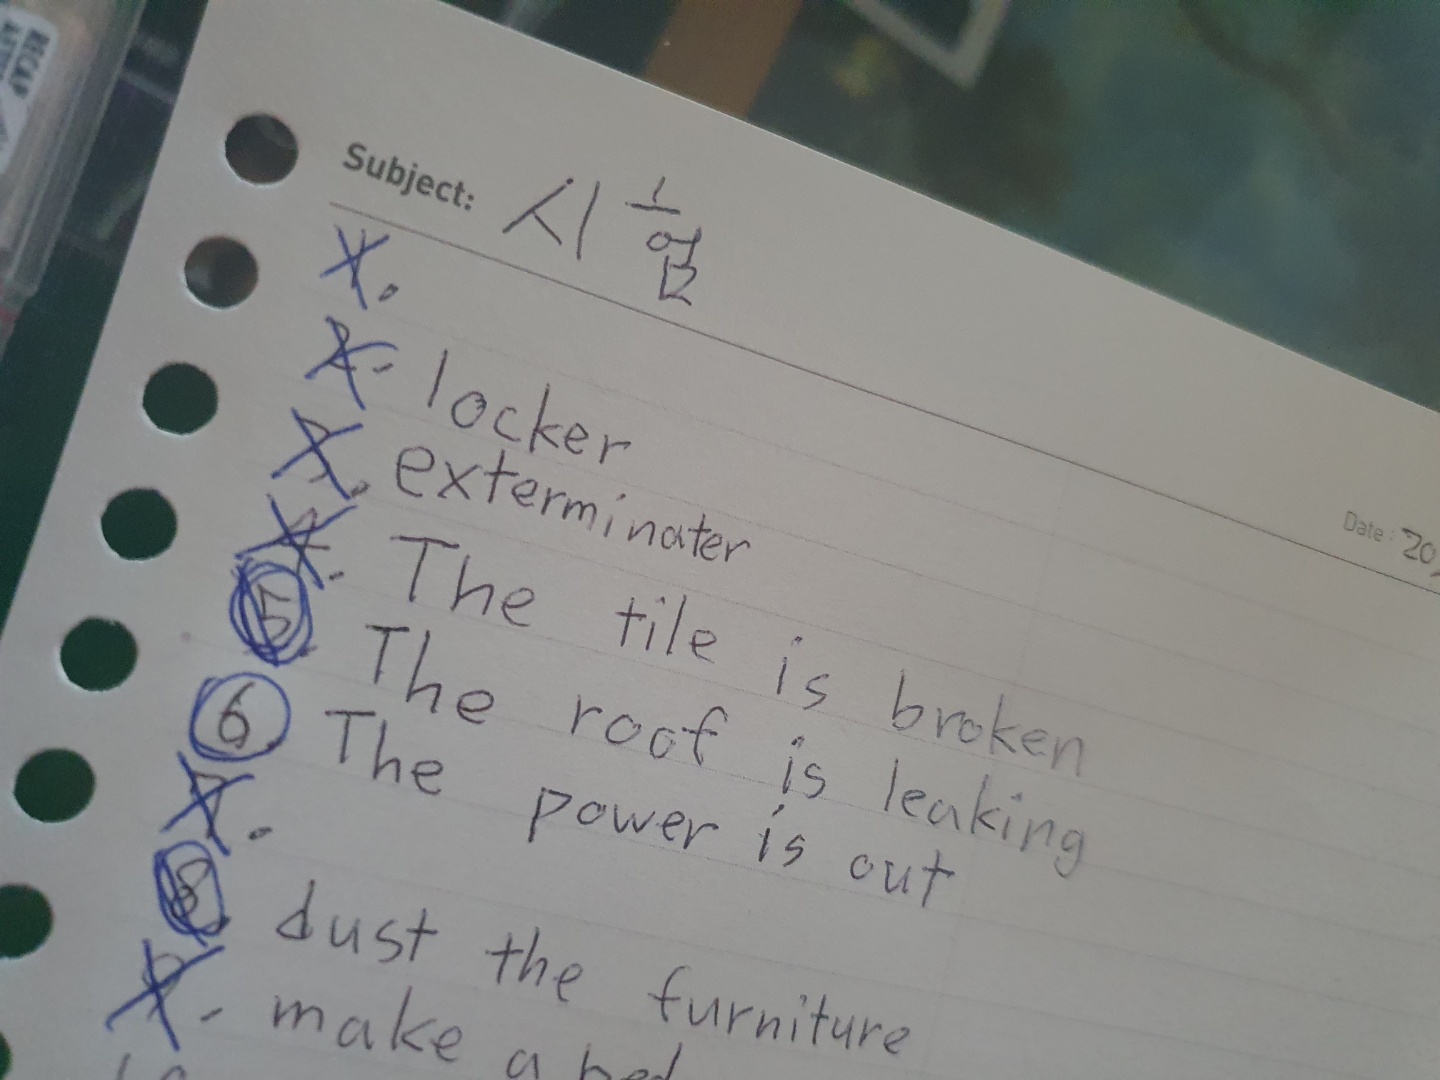 RECAP
Subject: 시험
Date: 20
1.
2. locker
3. exterminater
4. The tile is broken
5. The roof is leaking
6 The power is out
7.
8. dust the furniture
9. make a bed